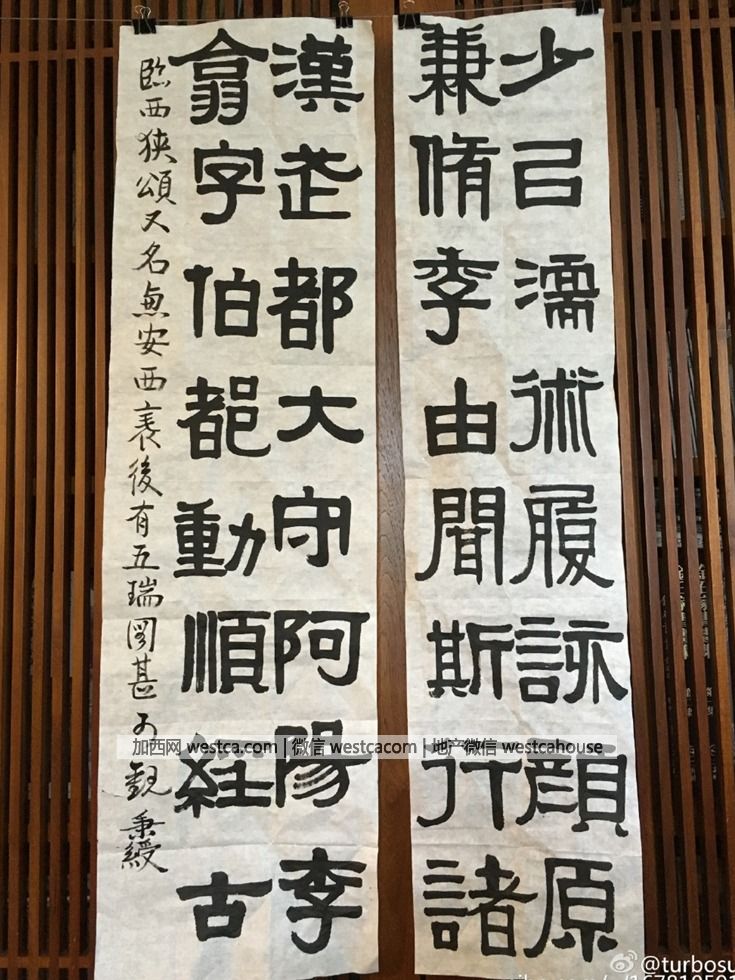 少㠯濡術履詠顏原
兼脩季由聞斯行諸
漢武都大守阿陽李
翕字伯都動順經古
臨西狹頌又名惠安西表後有五瑞圖甚可觀秉綬
加西网 westca.com | 微信 westcacom | 地产微信 westcahouse
@turbosu